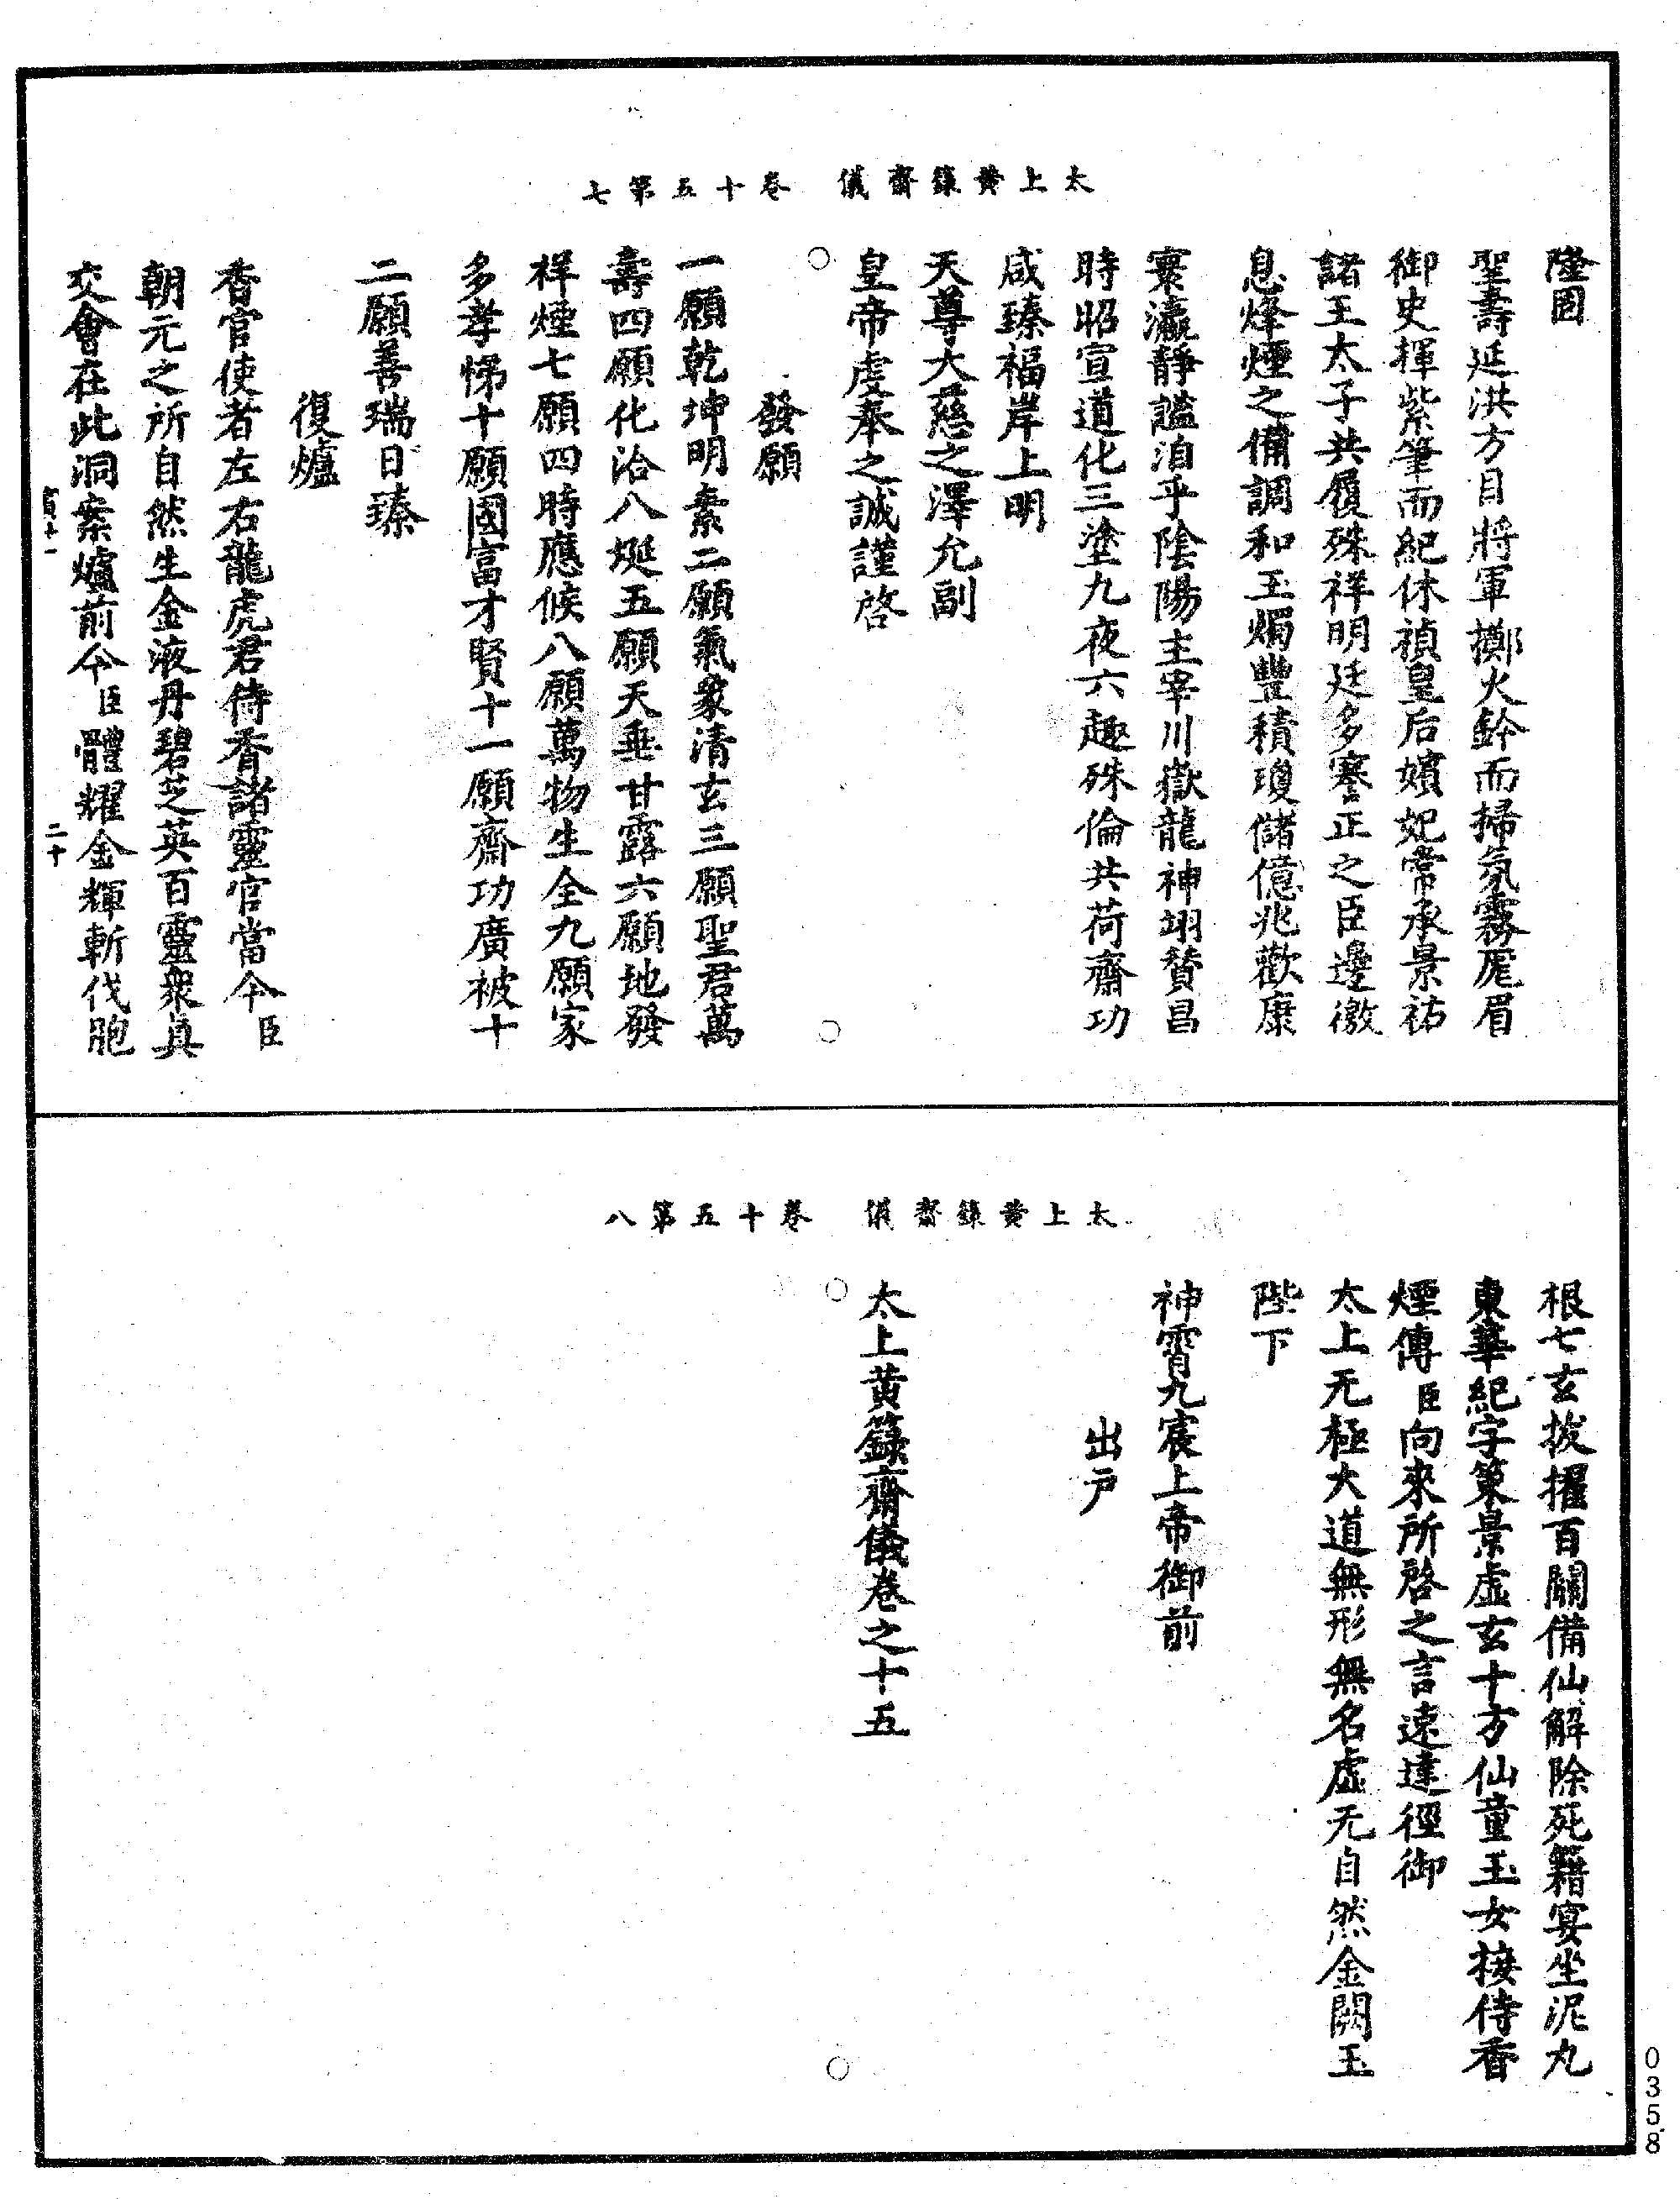 太上黃籙齋儀　卷十五第七
隆固
聖壽延洪方目將軍擲火鈴而掃氛霧厖眉
御史揮紫筆而紀休禎皇后嬪妃常承景祐
諸王太子共履殊祥明廷多謇正之臣邊徼
息烽煙之備調和玉燭豐積瓊儲億兆歡康
寰瀛靜謐洎乎陰陽主宰川嶽龍神翊贊昌
時昭宣道化三塗九夜六趣殊倫共荷齋功
咸臻福岸上明
天尊大慈之澤允副
皇帝虔奉之誠謹啓
發願
一願乾坤明素二願氣象清玄三願聖君萬
壽四願化洽八埏五願天垂甘露六願地發
祥煙七願四時應候八願萬物生全九願家
多孝悌十願國富才賢十一願齋功廣被十
二願善瑞日臻
復爐
香官使者左右龍虎君侍香諸靈官當令臣
朝元之所自然生金液丹碧芝英百靈衆真
交會在此洞案爐前令臣體耀金輝斬伐胞
賓十一　二十
太上黃籙齋儀　卷十五第八
根七玄拔擢百關備仙解除死籍宴坐泥丸
東華紀字策景虛玄十方仙童玉女接侍香
煙傳臣向來所啓之言速達徑御
太上无極大道無形無名虛无自然金闕玉
陛下
神霄九宸上帝御前
出戶
太上黃籙齋儀卷之十五
0358